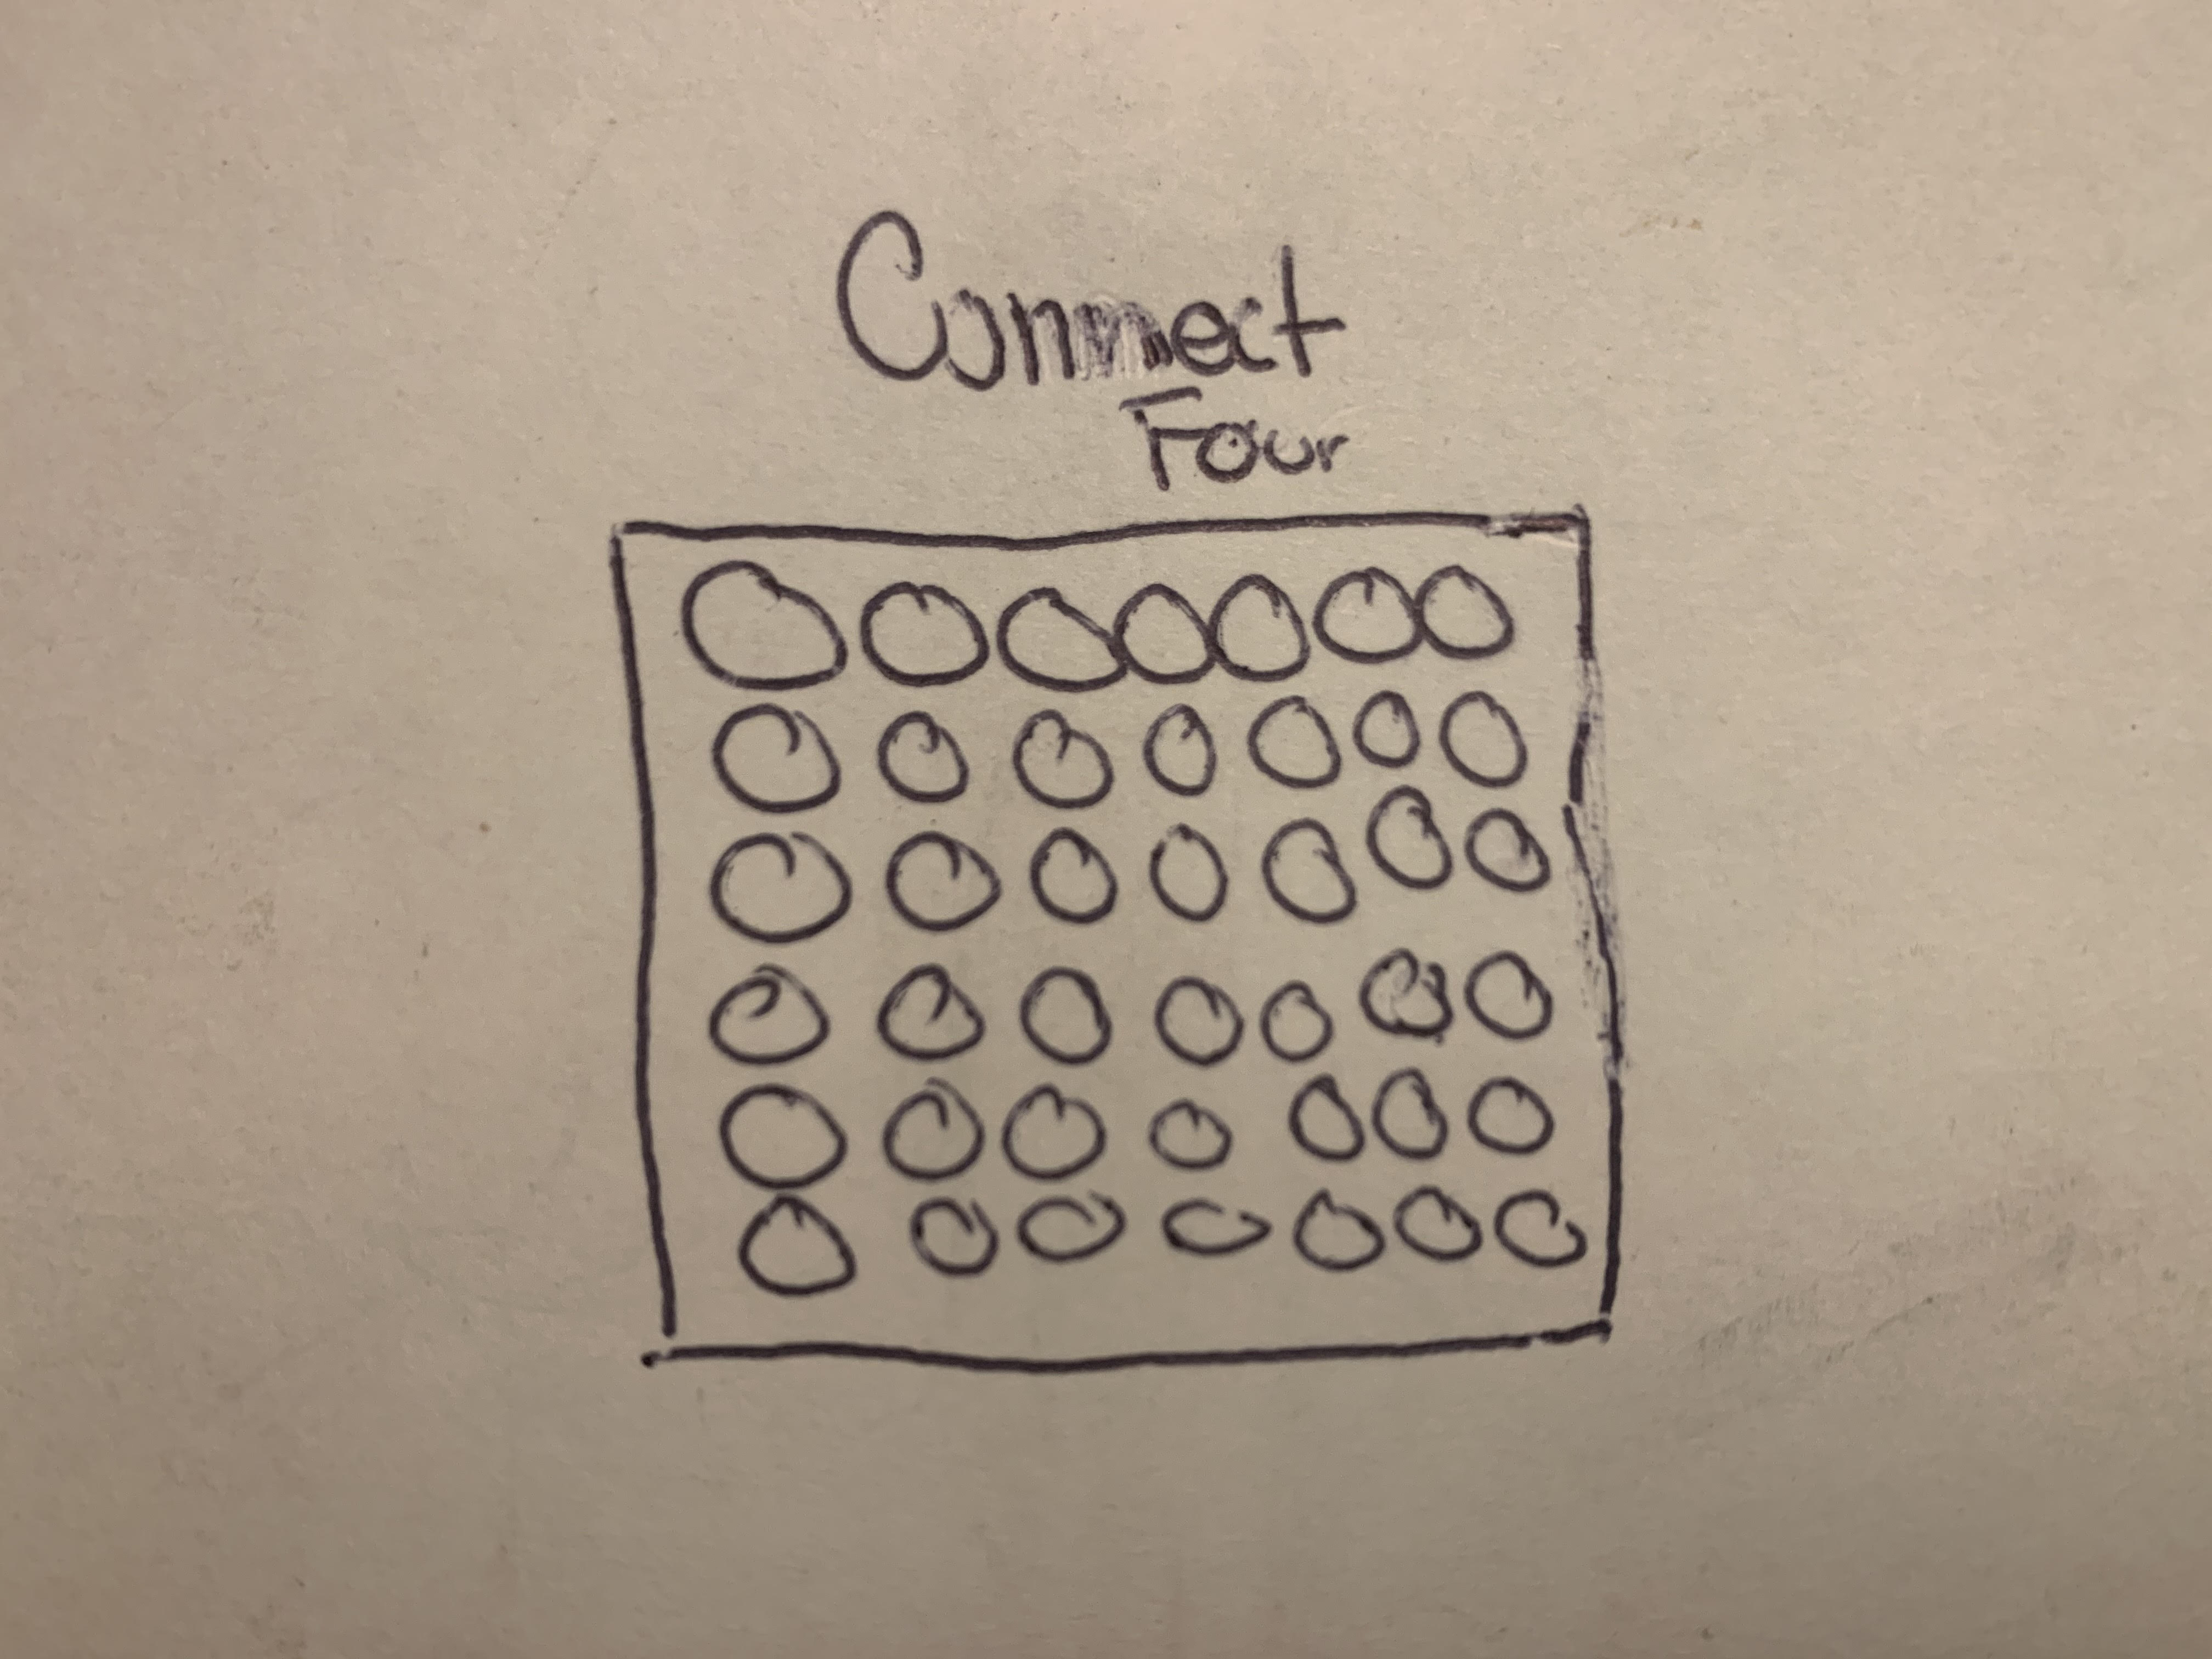 Connect
Four